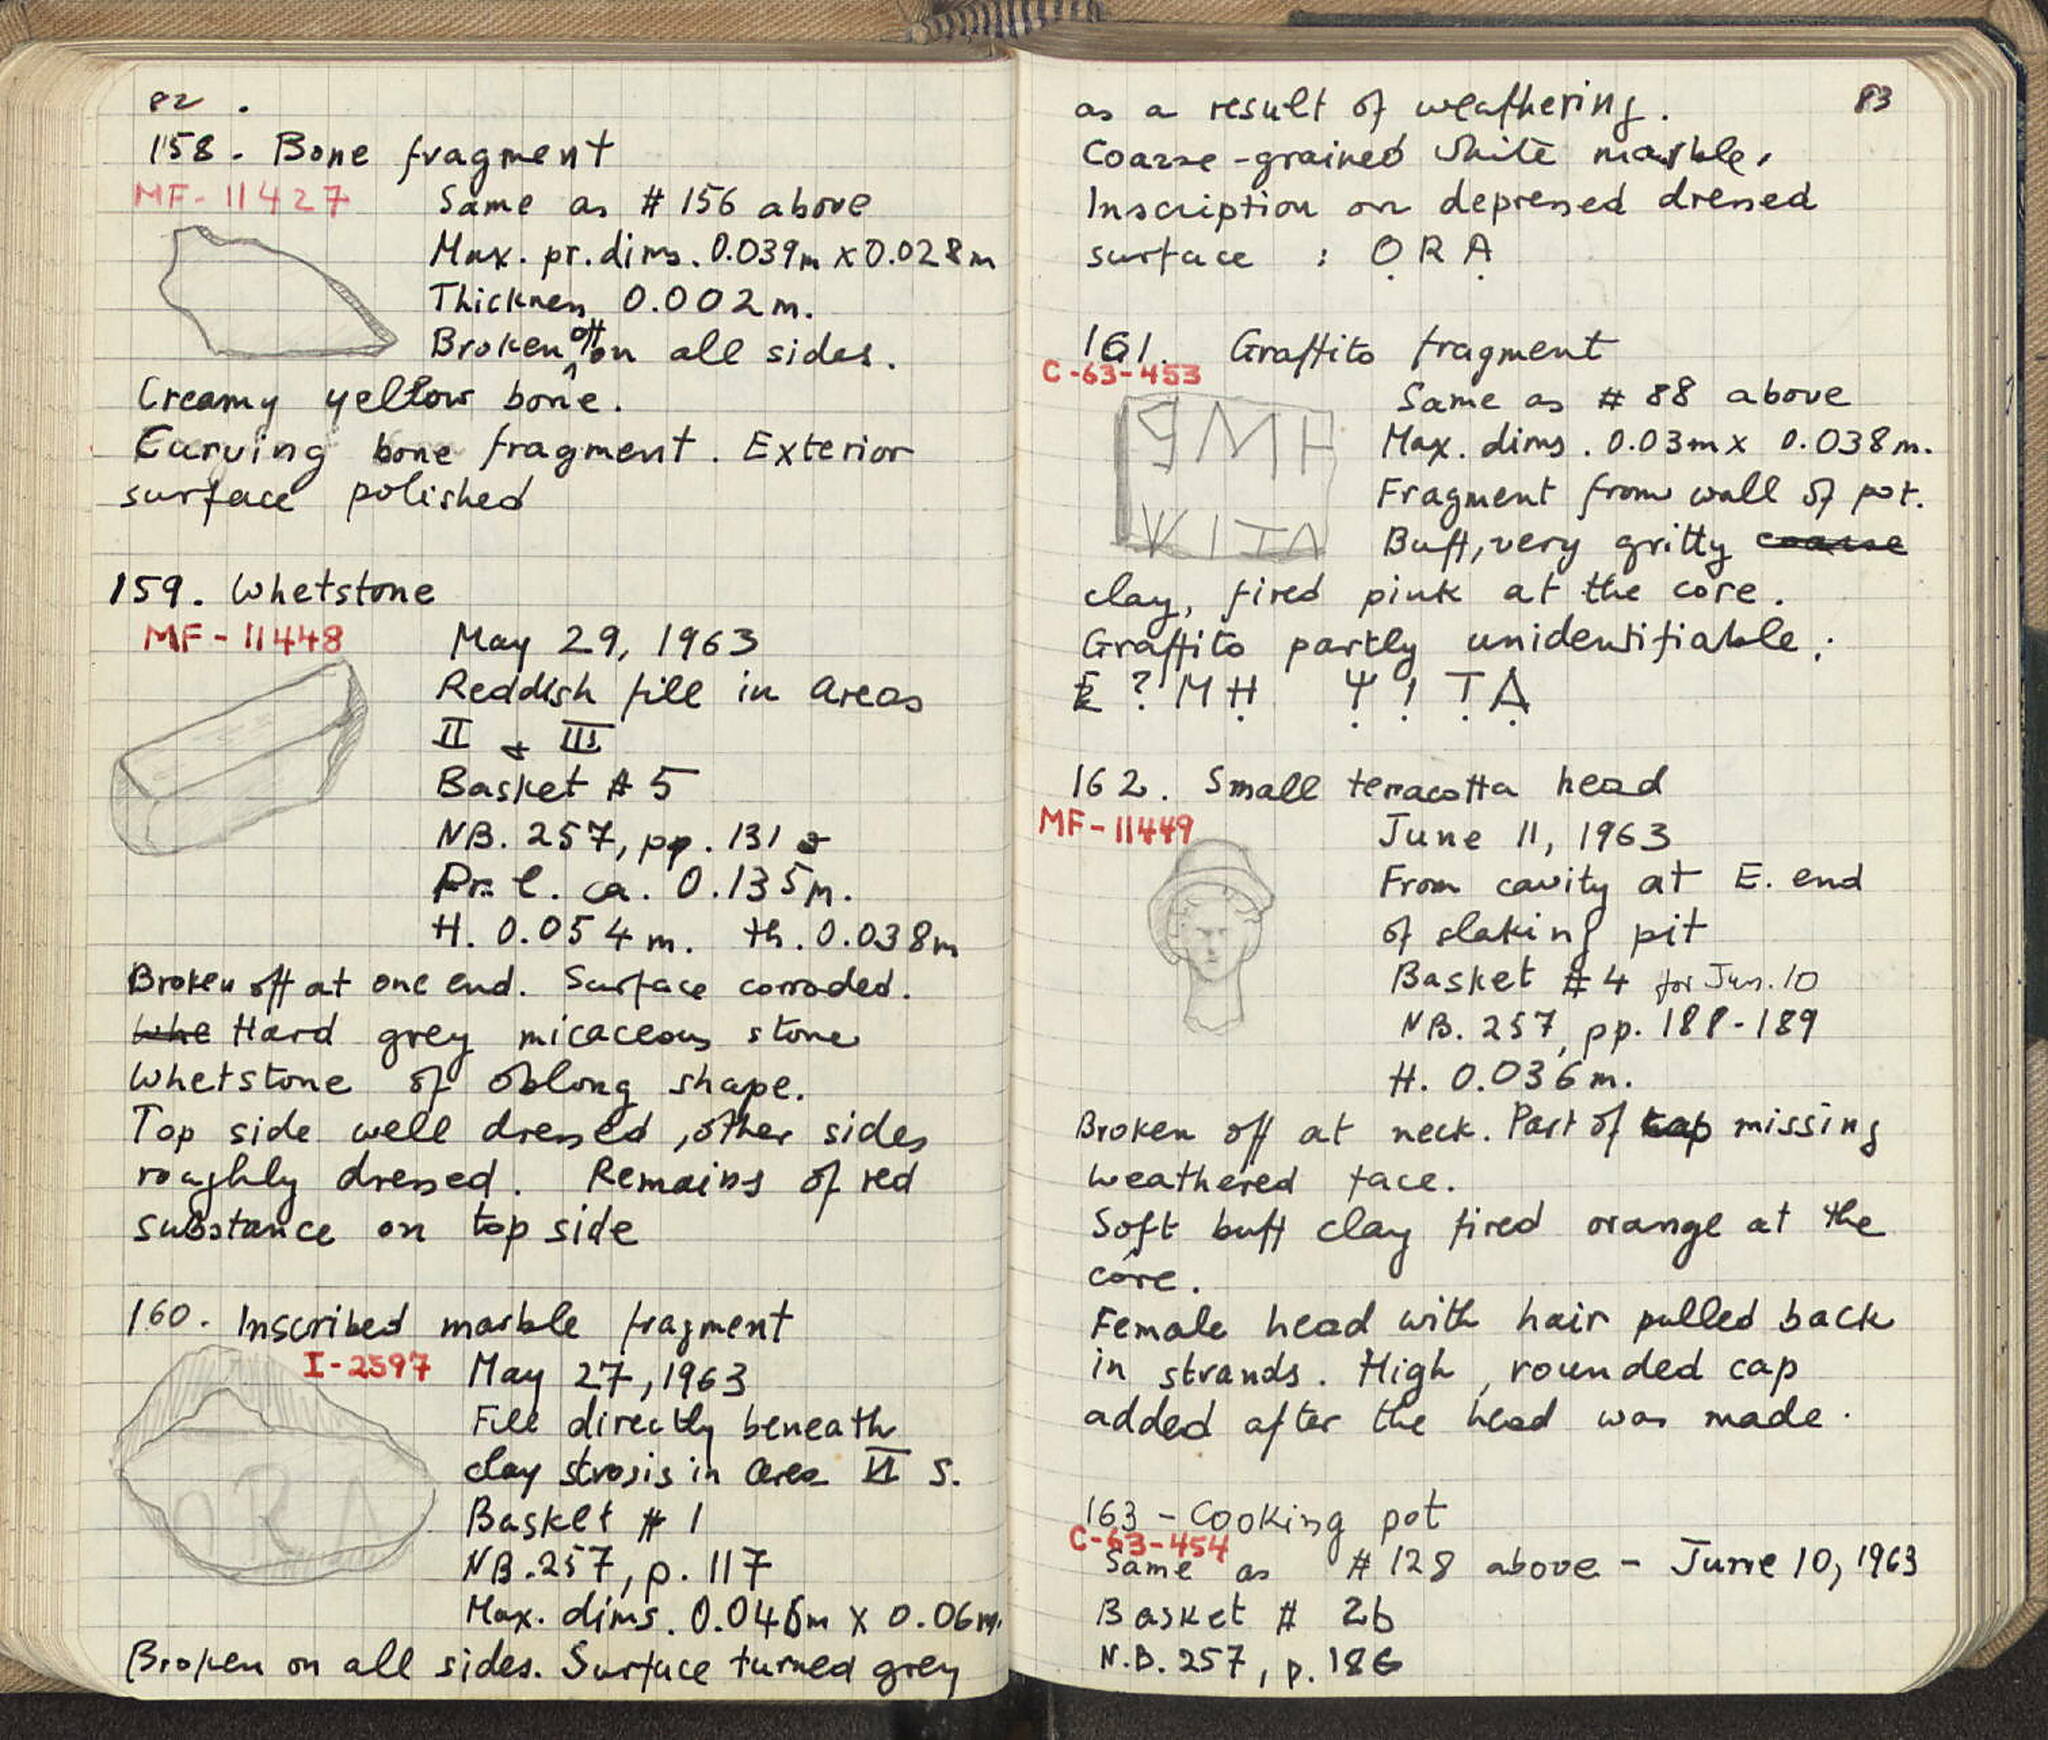 82.
158. Bone fragment
MF-11427
Same as # 156 above
Max. pr. dims. 0.039m x 0.028m
Thickness 0.002m.
Broken off on all sides.
Creamy yellow bone.
Curving bone fragment. Exterior
surface polished
159. Whetstone
MF-11448
May 29, 1963
Reddish fill in Areas
II & III
Basket # 5
NB. 257, pp. 131
Pr. l. ca. 0.135m.
H. 0.054m. th. 0.038m
Broken off at one end. Surface corroded.
Whe Hard grey micaceous stone
Whetstone of oblong shape.
Top side well dressed, other sides
roughly dressed. Remains of red
substance on top side
160. Inscribed marble fragment
I-2597
May 27, 1963
Fill directly beneath
clay strosis in Area VI S.
Basket # 1
NB. 257, p. 117
ORA
Max. dims. 0.046m x 0.06m.
Broken on all sides. Surface turned grey
83
as a result of weathering.
Coarse-grained white marble.
Inscription on depressed dressed
surface : ỌRẠ
161. Graffito fragment
C-63-453
Same as # 88 above
Max. dims. 0.03m x 0.038m.
Fragment from wall of pot.
Buff, very gritty coarse
clay, fired pink at the core.
Graffito partly unidentifiable:
E ? M H Ψ I T A
162. Small terracotta head
MF-11449
June 11, 1963
From cavity at E. end
of slaking pit
Basket # 4 for Jun. 10
NB. 257, pp. 188-189
H. 0.036m.
Broken off at neck. Part of cap missing
Weathered face.
Soft buff clay fired orange at the
core.
Female head with hair pulled back
in strands. High, rounded cap
added after the head was made.
163 - Cooking pot
C-63-454
Same as # 128 above - June 10, 1963
Basket # 26
N.B. 257, p. 186